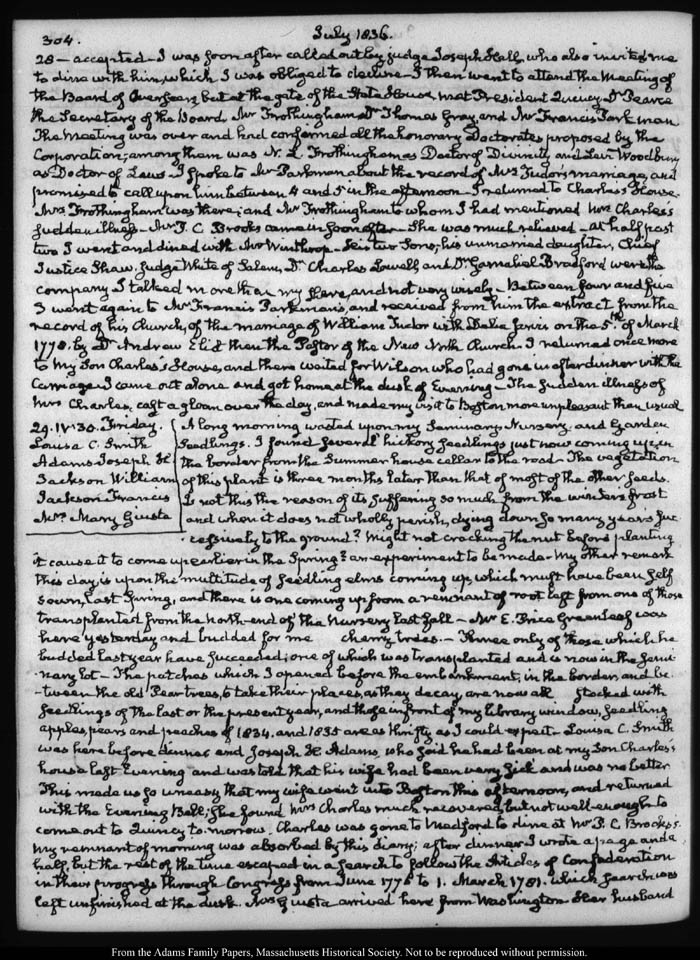 304.
July 1836.
28 — accepted — I was soon after called out by judge Joseph Hall, who also invited me
to dine with him, which I was obliged to decline — I then went to attend the Meeting of
the Board of Overseers, but at the gate of the State House, met President Quincy Dr Pearce
the Secretary of the Board, Mr Frothingham Dr Thomas Gray, and Mr Francis Parkman
The Meeting was over and had confirmed all the honorary Doctorates proposed by the
Corporation; among them was N. L. Frothingham as Doctor of Divinity and Levi Woodbury
as Doctor of Laws. I spoke to Mr Parkman about the record of Mrs Tudor's marriage, and
promised to call upon him between 4 and 5 in the afternoon. I returned to Charles's House.
Mrs Frothingham was there; and Mr Frothingham to whom I had mentioned Mrs Charles's
sudden illness — Mr P. C. Brooks came in soon after — She was much relieved — at half past
two I went and dined with Mr Winthrop — his two Sons, his unmarried daughter, Chief
Justice Shaw, Judge White of Salem, Dr Charles Lowell, and Dr Gamaliel Bradford were the
company I talked more than my share, and not very wisely — Between four and five
I went again to Mr Francis Parkman's, and received from him the extract from the
record of his Church, of the marriage of William Tudor with Delia Jarvis on the 5th of March
1778. by Dr Andrew Eliot then the Pastor of the New North Church. I returned once more
to my Son Charles's House, and there waited for Wilson who had gone in after dinner with the
Carriage. I came out alone and got home at the dusk of Evening — The sudden illness of
Mrs Charles, cast a gloom over the day, and made my visit to Boston more unpleasant than usual
29. IV:30. Friday.
Louisa C. Smith
Adams Joseph H.
Jackson William
Jackson Francis
Mrs Mary Giusta
A long morning wasted upon my Seminary, Nursery, and Garden
Seedlings. I found several hickory seedlings just now coming up, in
the border from the Summer house cellar to the road — The vegetation
of this plant is three months later than that of most of the other seeds.
Is not this the reason of its suffering so much from the winter's frost
and when it does not wholly perish, dying down so many years suc
cessively to the ground? Might not cracking the nut before planting
it cause it to come up earlier in the Spring? an experiment to be made — My other remark
this day is upon the multitude of seedling elms coming up, which must have been self
sown, last Spring, and there is one coming up from a remnant of root left from one of those
transplanted from the north-end of the Nursery last fall — Mr E. Price Greenleaf was
here yesterday and budded for me cherry trees. — Three only of those which he
budded last year have succeeded; one of which was transplanted and is now in the Semi
nary lot — The patches which I opened before the embankment, in the border, and be
-tween the old Pear trees, to take their places, as they decay, are now all stocked with
seedlings of the last or the present year, and those in front of my library window, seedling
apples, pears and peaches of 1834. and 1835 are as thrifty as I could expect. Louisa C. Smith
was here before dinner and Joseph H. Adams, who said he had been at my Son Charles's
house last Evening and was told that his wife had been very sick and was no better
This made us so uneasy that my wife went into Boston this afternoon, and returned
with the Evening Bell; She found Mrs Charles much recovered, but not well enough to
come out to Quincy to-morrow. Charles was gone to Medford to dine at Mr P. C. Brooks's.
My remnant of morning was absorbed by this diary; after dinner I wrote a page and a
half, but the rest of the time escaped in a search to follow the Articles of Confederation
in their progress through Congress from June 1776 to 1. March 1781. which search was
left unfinished at the dusk. Mrs Giusta arrived here from Washington. Her husband
From the Adams Family Papers, Massachusetts Historical Society. Not to be reproduced without permission.